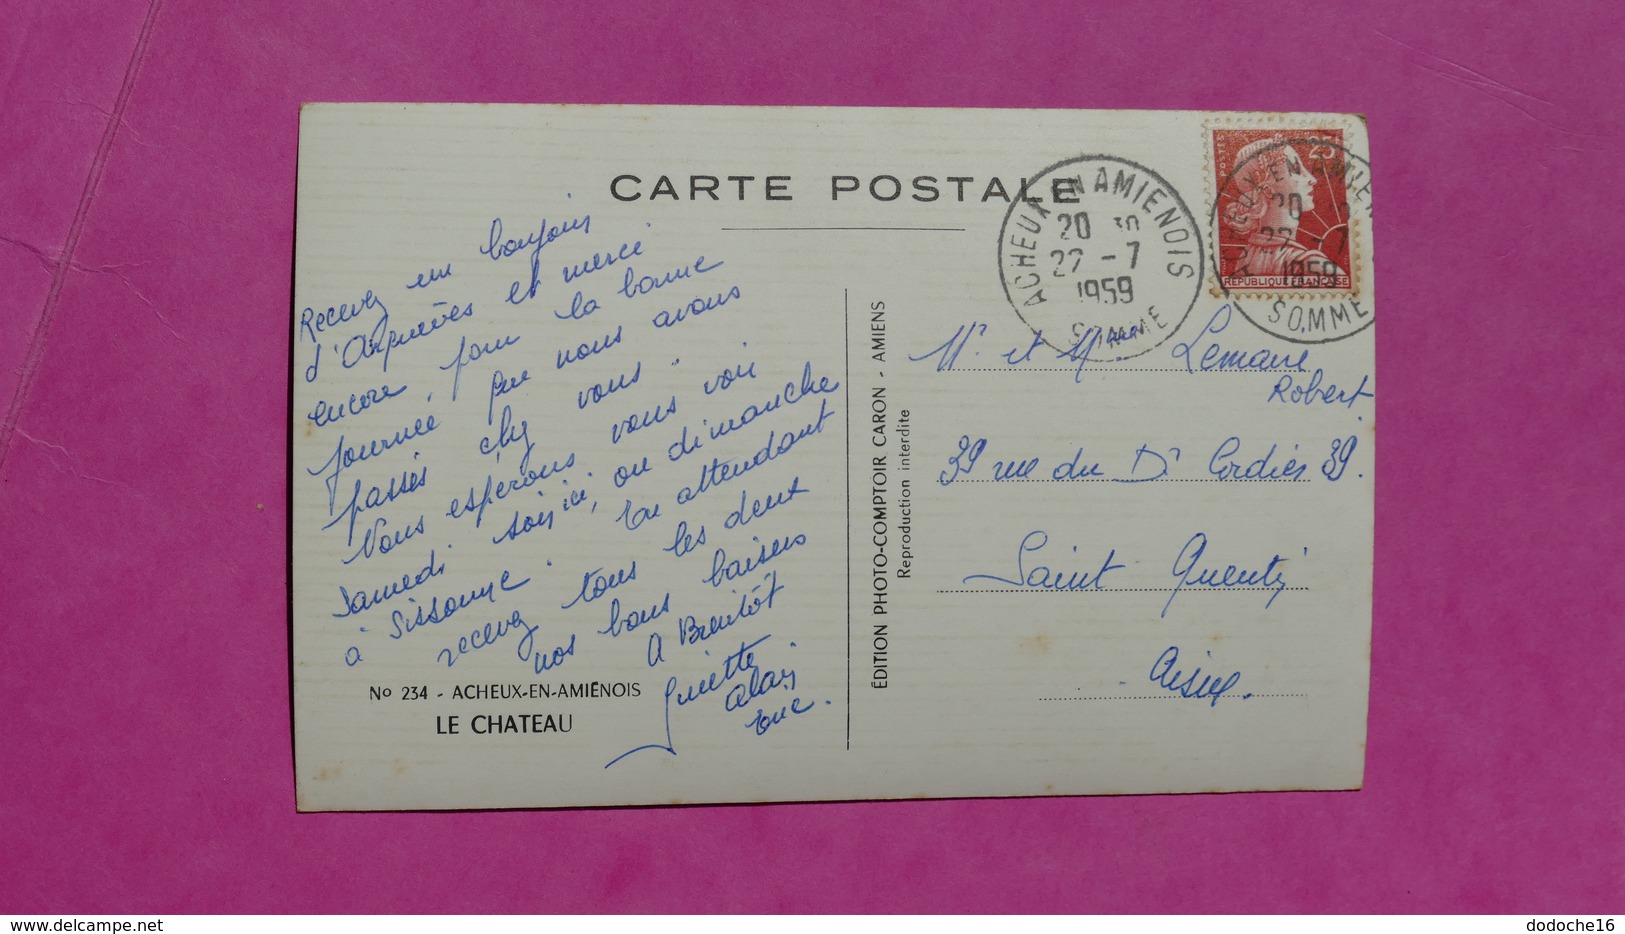 CARTE POSTALE
Recevez un bonjour
d'Arquèves et merci
encore, pour la bonne
journée que nous avons
passés chez vous.
Nous espérons vous voir
samedi soir ici, ou dimanche
à Sissonne. En attendant
recevez tous les deux
nos bons baisers
A Bientôt
Ginette
Alain
Eric.
No 234 - ACHEUX-EN-AMIÉNOIS
LE CHATEAU
ÉDITION PHOTO-COMPTOIR CARON - AMIENS
Reproduction interdite
ACHEUX EN AMIENOIS
20 30
22 - 7
1959
SOMME
POSTES
25
RÉPUBLIQUE FRANÇAISE
20
22 - 7
1959
SOMME
Mr et Mme Lemaire
Robert.
39 rue du Dr Cordier 39.
Saint Quentin
Aisne.
dodoche16